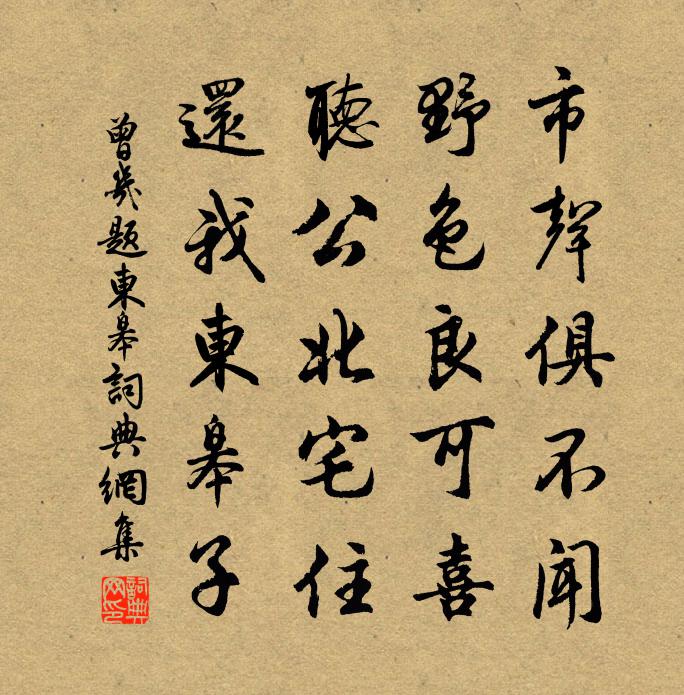 市聲俱不聞
野色良可喜
聽公北宅住
還我東皋子
曾幾題東皋詞典網集
詞典網印